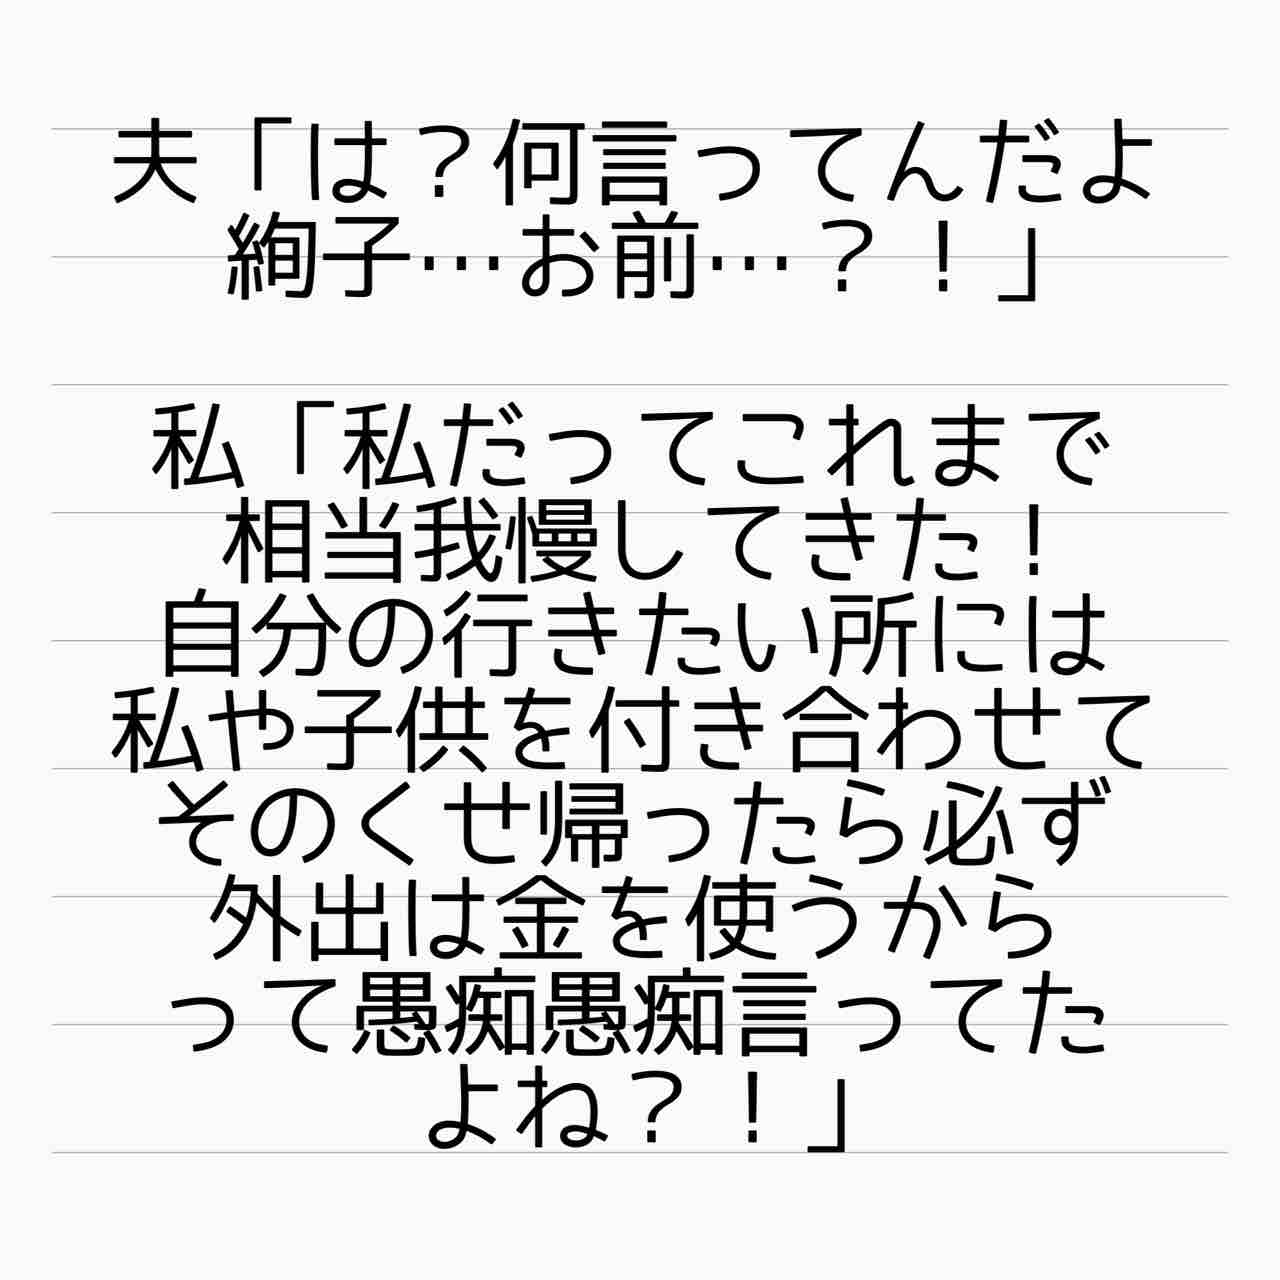 夫「は？何言ってんだよ
絢子…お前…？！」
私「私だってこれまで
相当我慢してきた！
自分の行きたい所には
私や子供を付き合わせて
そのくせ帰ったら必ず
外出は金を使うから
って愚痴愚痴言ってた
よね？！」